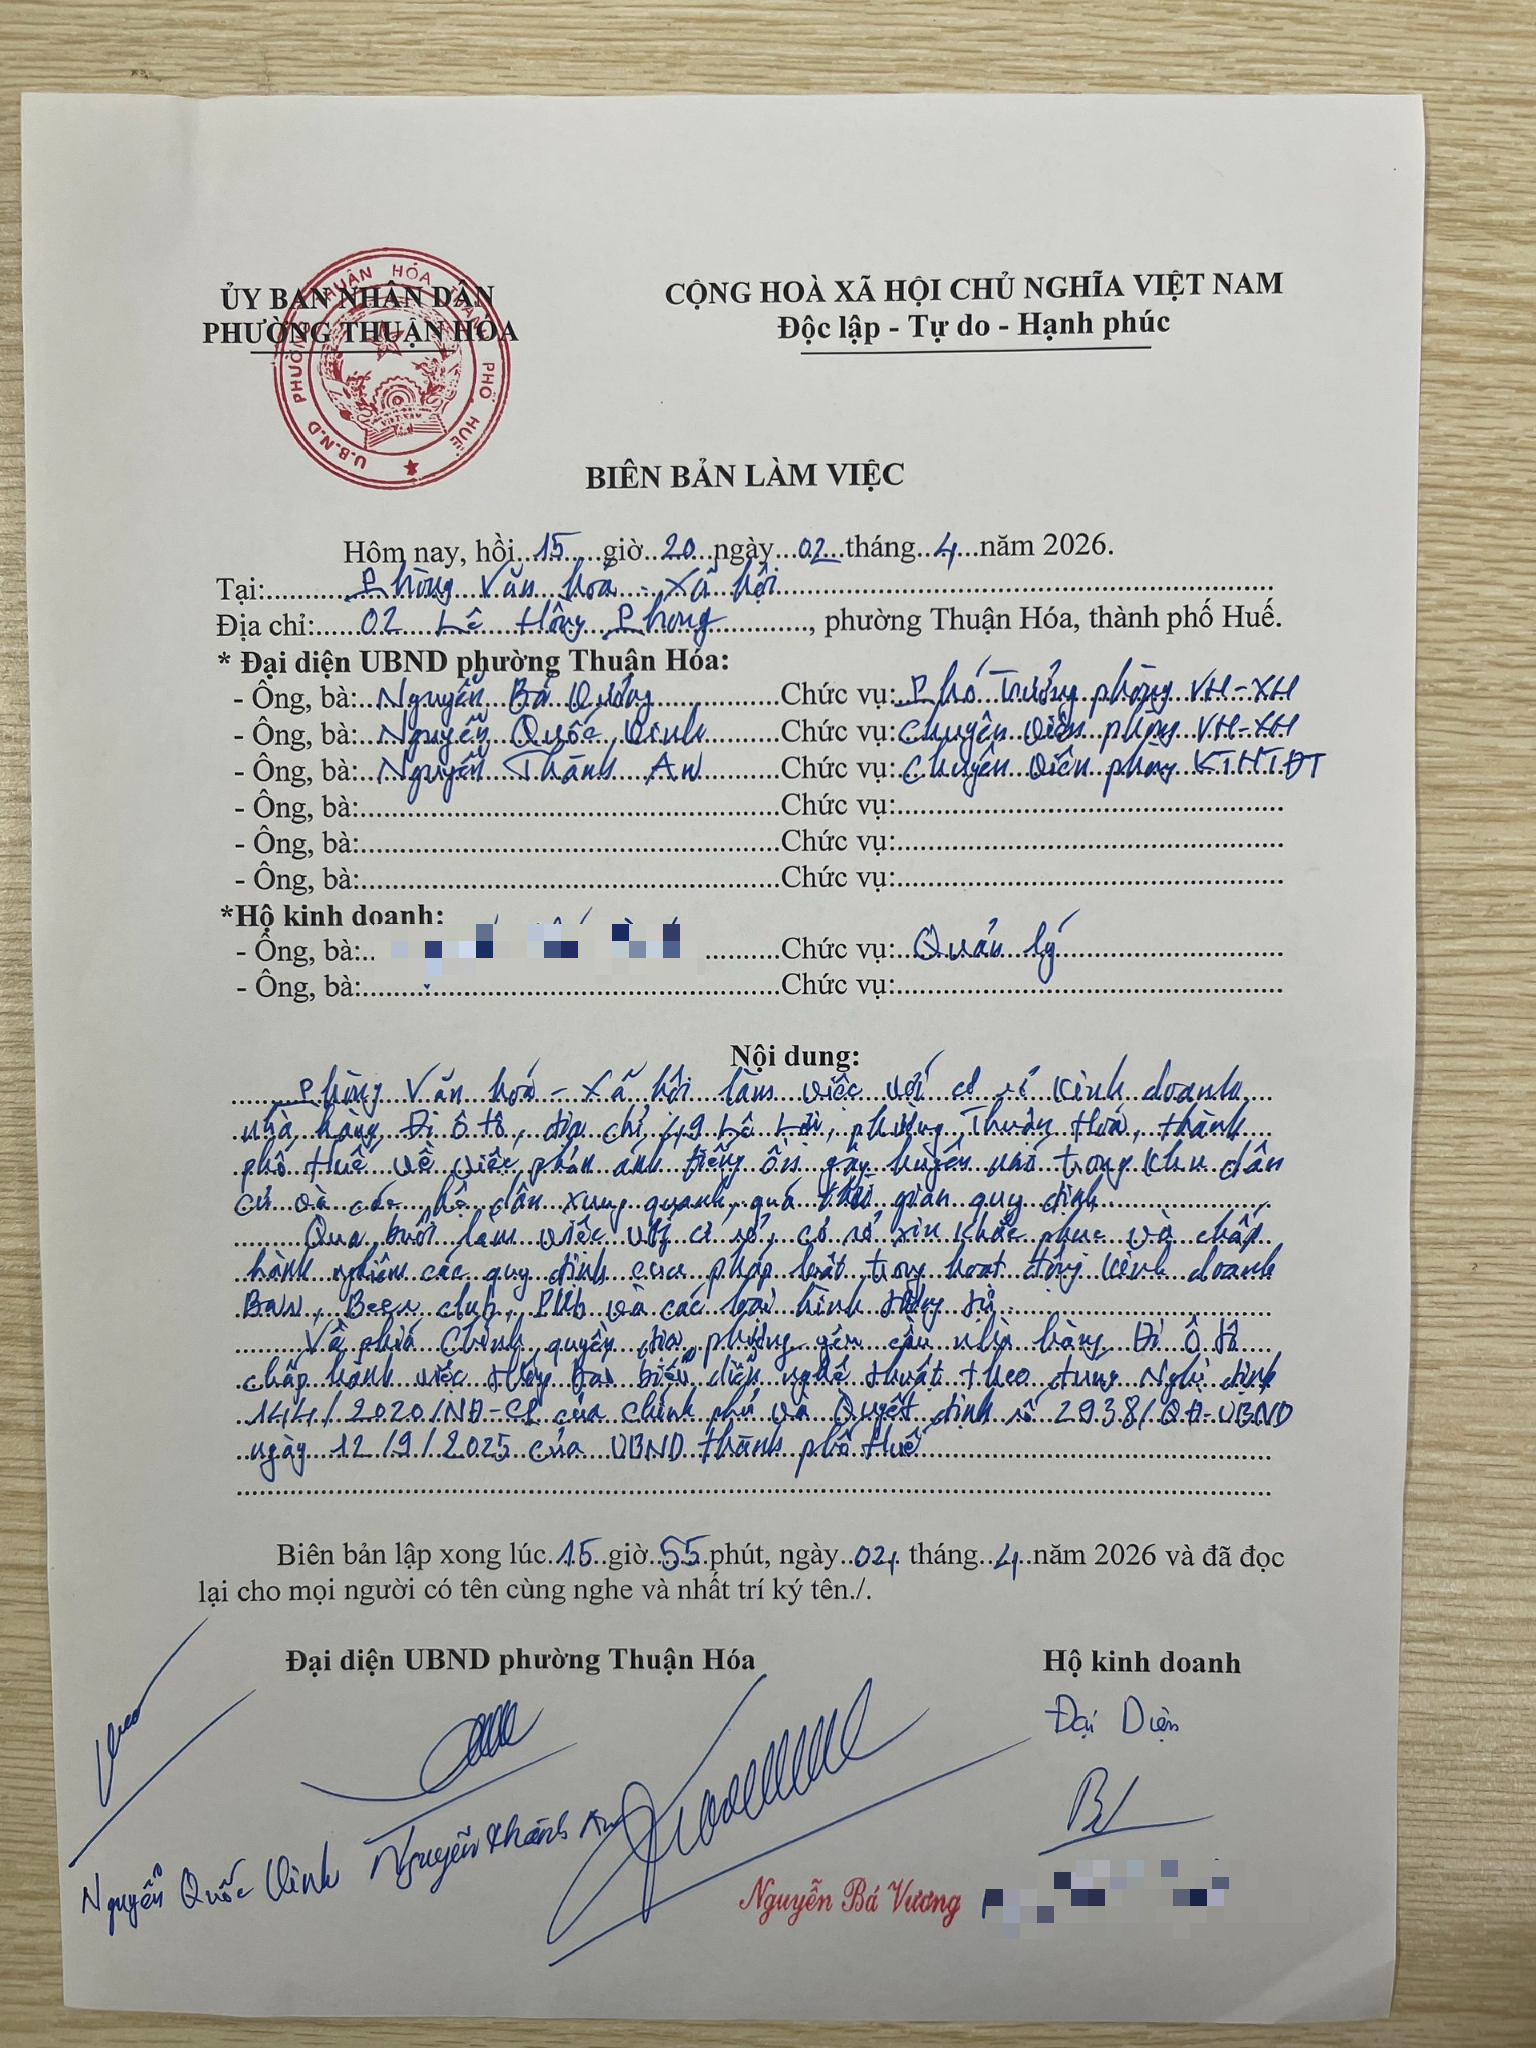 ỦY BAN NHÂN DÂN
PHƯỜNG THUẬN HÓA
CỘNG HOÀ XÃ HỘI CHỦ NGHĨA VIỆT NAM
Độc lập - Tự do - Hạnh phúc
U.B.N.D PHƯỜNG THUẬN HÓA THÀNH PHỐ HUẾ
BIÊN BẢN LÀM VIỆC
Hôm nay, hồi 15 giờ 20 ngày 02 tháng 4 năm 2026.
Tại: Phòng Văn hoá - Xã hội
Địa chỉ: 02 Lê Hồng Phong, phường Thuận Hóa, thành phố Huế.
* Đại diện UBND phường Thuận Hóa:
- Ông, bà: Nguyễn Bá Vương Chức vụ: Phó Trưởng phòng VH-XH
- Ông, bà: Nguyễn Quốc Vinh Chức vụ: Chuyên viên phòng VH-XH
- Ông, bà: Nguyễn Thành An Chức vụ: Chuyên viên phòng KTHTĐT
- Ông, bà: Chức vụ:
- Ông, bà: Chức vụ:
- Ông, bà: Chức vụ:
*Hộ kinh doanh:
- Ông, bà: Chức vụ: Quản lý
- Ông, bà: Chức vụ:
Nội dung:
Phòng Văn hoá - Xã hội làm việc với cơ sở kinh doanh
nhà hàng Đi ô tô, địa chỉ 49 Lê Lợi, phường Thuận Hoá, thành
phố Huế về việc phản ánh tiếng ồn gây huyên náo trong khu dân
cư và các hộ dân xung quanh quá thời gian quy định
Qua buổi làm việc với cơ sở, cơ sở xin khắc phục và chấp
hành nghiêm các quy định của pháp luật trong hoạt động kinh doanh
Bar, Beer club, Pub và các loại hình tương tự.
Về phía Chính quyền địa phương yêu cầu nhà hàng Đi Ô tô
chấp hành việc thông báo biểu diễn nghệ thuật theo đúng Nghị định
144/2020/NĐ-CP của Chính phủ và Quyết định số 2938/QĐ-UBND
ngày 12/9/2025 của UBND thành phố Huế
Biên bản lập xong lúc 15 giờ 55 phút, ngày 02 tháng 4 năm 2026 và đã đọc
lại cho mọi người có tên cùng nghe và nhất trí ký tên./.
Đại diện UBND phường Thuận Hóa
Hộ kinh doanh
Đại Diện
Nguyễn Quốc Vinh
Nguyễn Thành An
Nguyễn Bá Vương